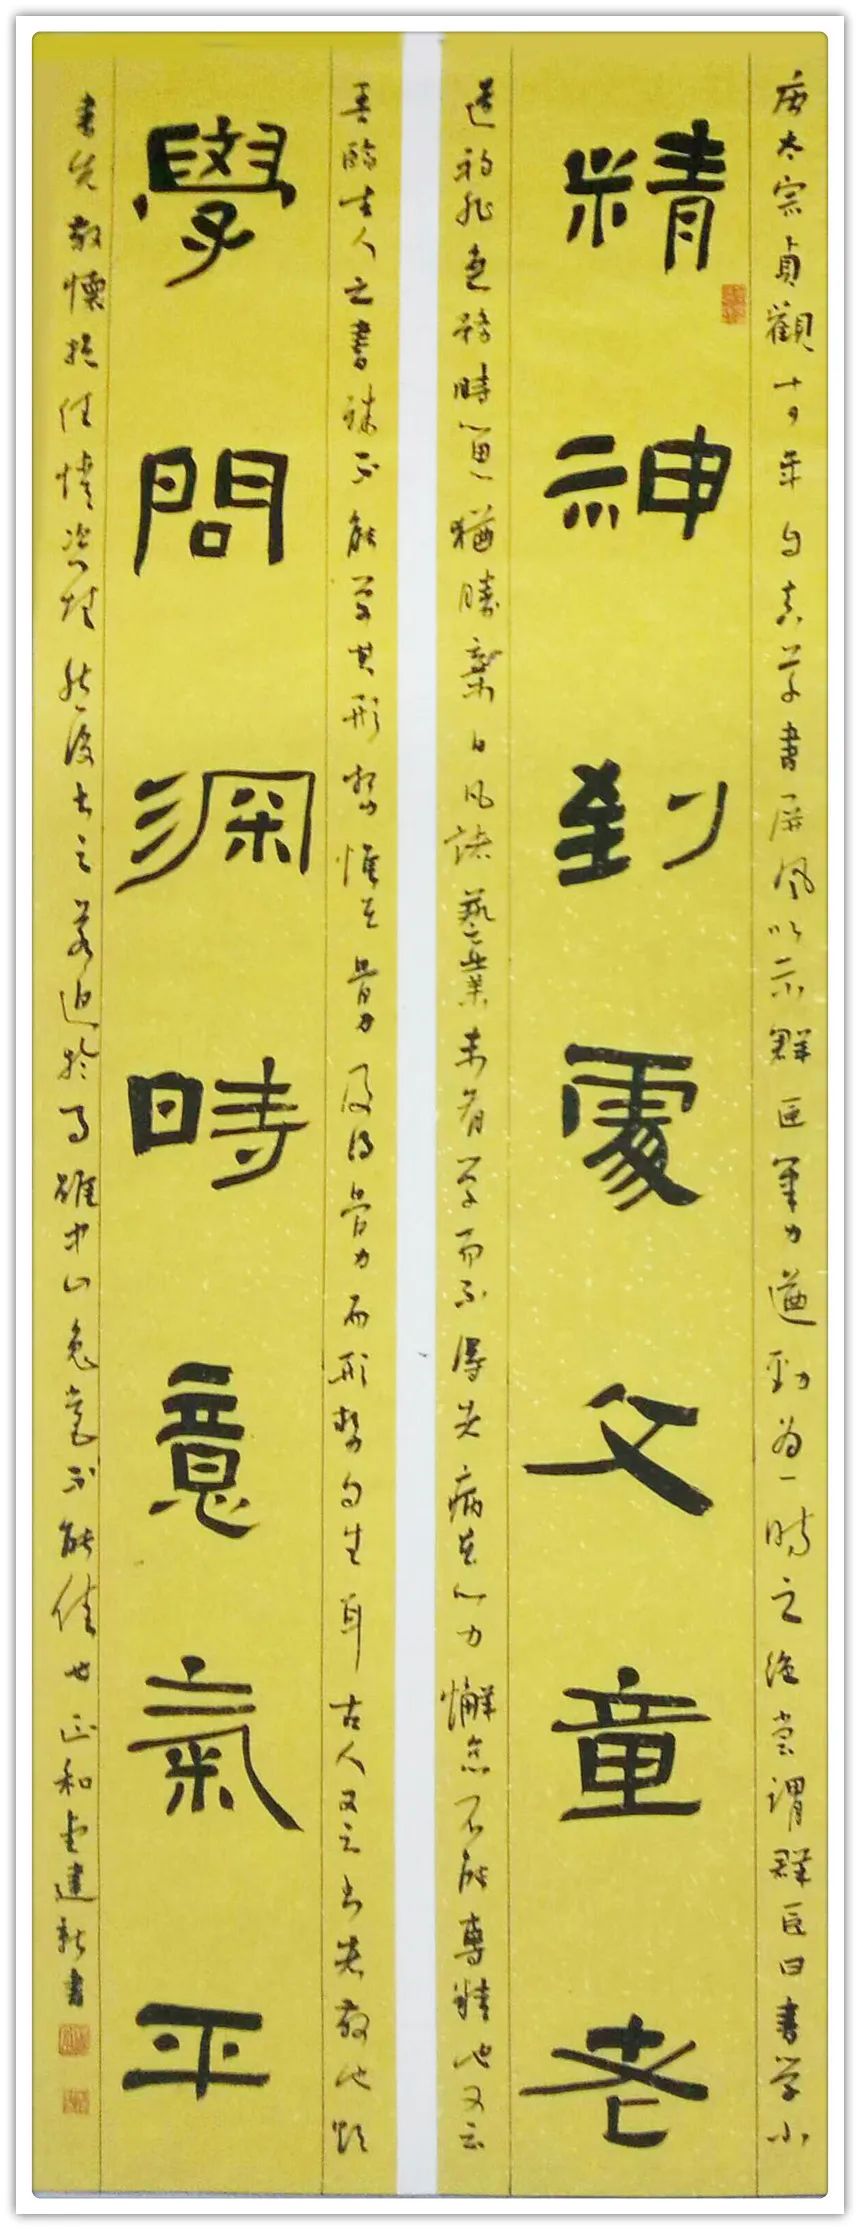 唐太宗貞觀十四年自真草書屏風以示群臣筆力遒勁為一時之絕嘗謂群臣曰書學小
精神到處文童老
道初非急務時猶勝棄日凡諸藝業未有學而不得失病在心力懈怠不能專精也又云
吾臨古人之書殊不能學其形勢惟在骨力及得骨力而形勢自生耳古人又云書者散也欲
學問深時意氣平
書先散懷抱任情恣性然後書之若迫於事雖中山兔毫不能佳也正和堂建新書